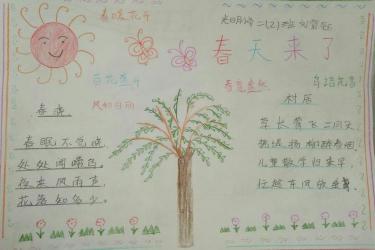 春暖花开
二(2)班
春天来了
百花盛开
春意盎然
鸟语花香
风和日丽
春晓
春眠不觉晓
处处闻啼鸟
夜来风雨声
花落知多少。
村居
草长莺飞二月天
拂堤杨柳醉春烟
儿童散学归来早
忙趁东风放纸鸢